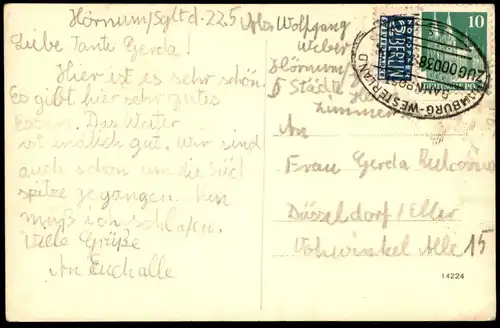 Hörnum/Sylt d. 22.5
Liebe Tante Gerda!
Hier ist es sehr schön.
Es gibt hier sehr gutes
Essen. Das Weter
ist endlich gut. Wir sind
auch schon um die Süd
spitze gegangen. Nun
muß ich schlafen.
Viele Grüße
An Euch alle
Abs. Wolfgang
Weber
Hörnum/
5 Städte
Zimmer
BERLIN
10
HAMBURG-WESTERLAND
BAHNPOST
ZUG 00038
An
Frau Gerda
Düsseldorf/Eller
Vohwinkel Alle 15
14224